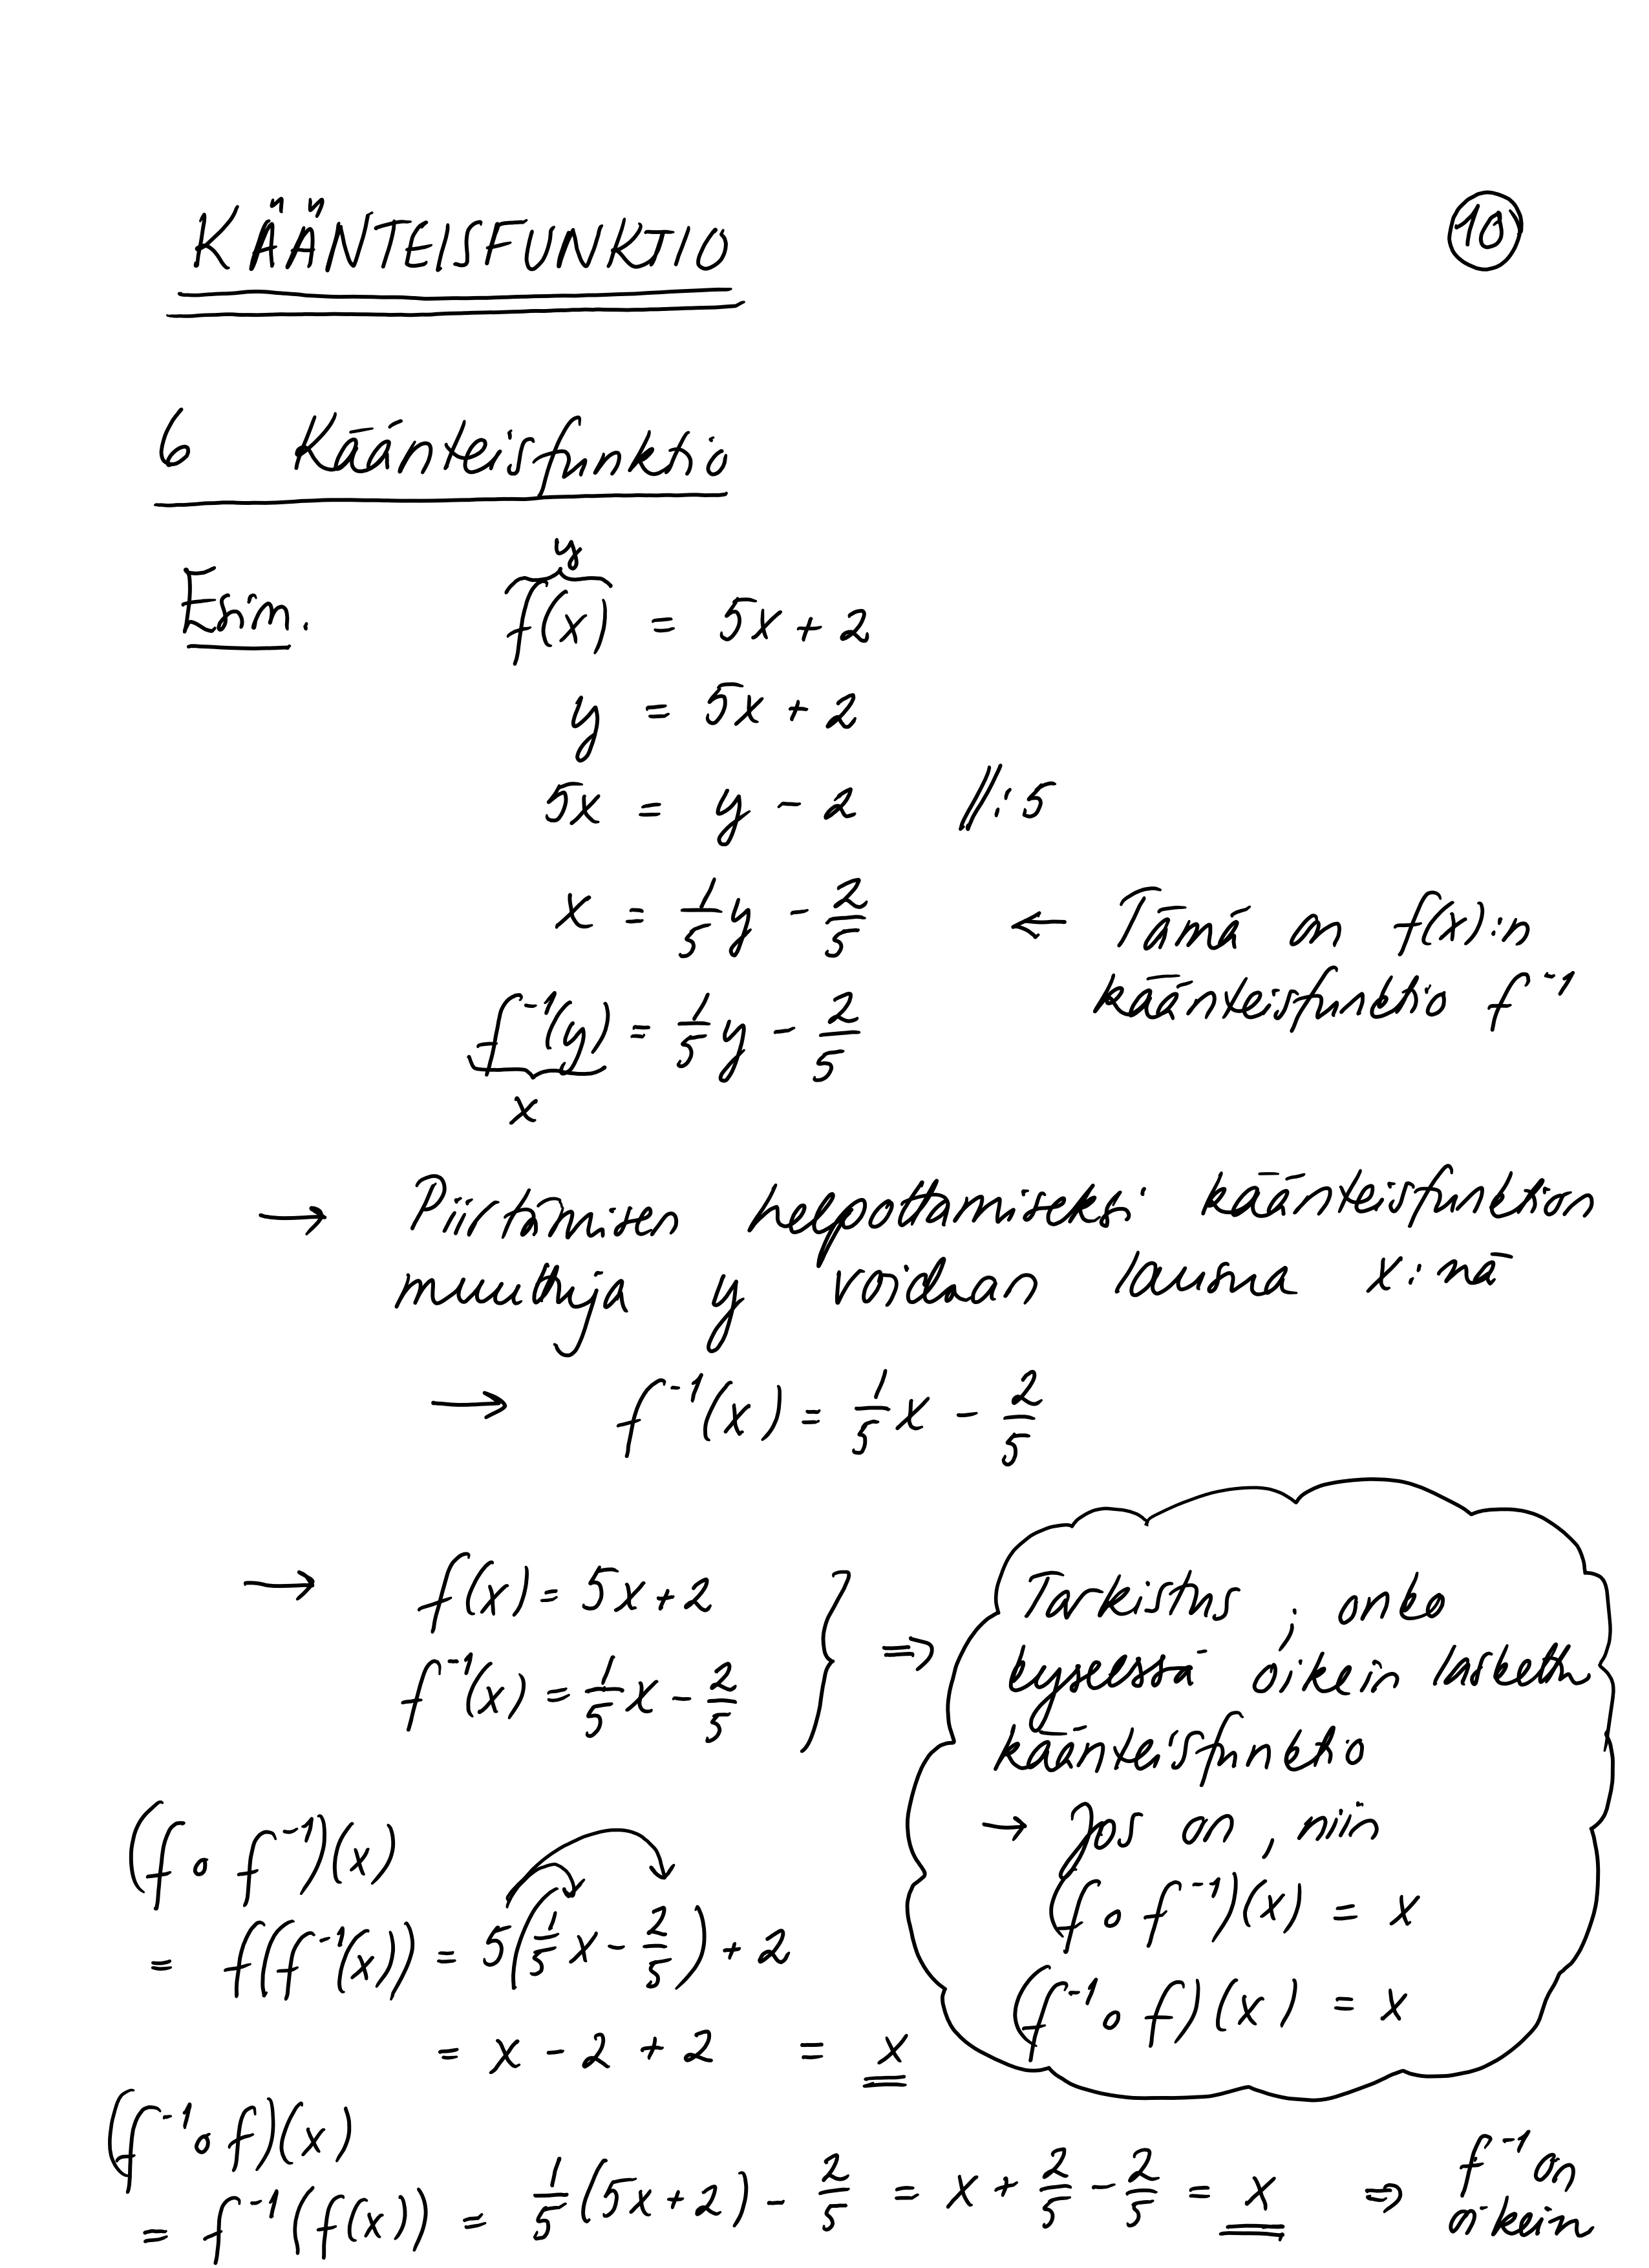 KÄÄNTEISFUNKTIO
10
6 Käänteisfunktio
y
Esim. f(x) = 5x + 2
y = 5x + 2
5x = y - 2 //:5
x = 1/5 y - 2/5 ← Tämä on f(x):n
käänteisfunktio f⁻¹
f⁻¹(y) = 1/5 y - 2/5
x
→ Piirtämisen helpottamiseksi käänteisfunktion
muuttuja y voidaan lausua x:nä
→ f⁻¹(x) = 1/5 x - 2/5
→ f(x) = 5x + 2
f⁻¹(x) = 1/5 x - 2/5 } ⇒
Tarkistus, onko
kyseessä oikein laskettu
käänteisfunktio
→ Jos on, niin
(f ∘ f⁻¹)(x) = x
(f⁻¹ ∘ f)(x) = x
(f ∘ f⁻¹)(x)
= f(f⁻¹(x)) = 5(1/5 x - 2/5) + 2
= x - 2 + 2 = x
(f⁻¹ ∘ f)(x)
= f⁻¹(f(x)) = 1/5(5x + 2) - 2/5 = x + 2/5 - 2/5 = x ⇒ f⁻¹ on
oikein